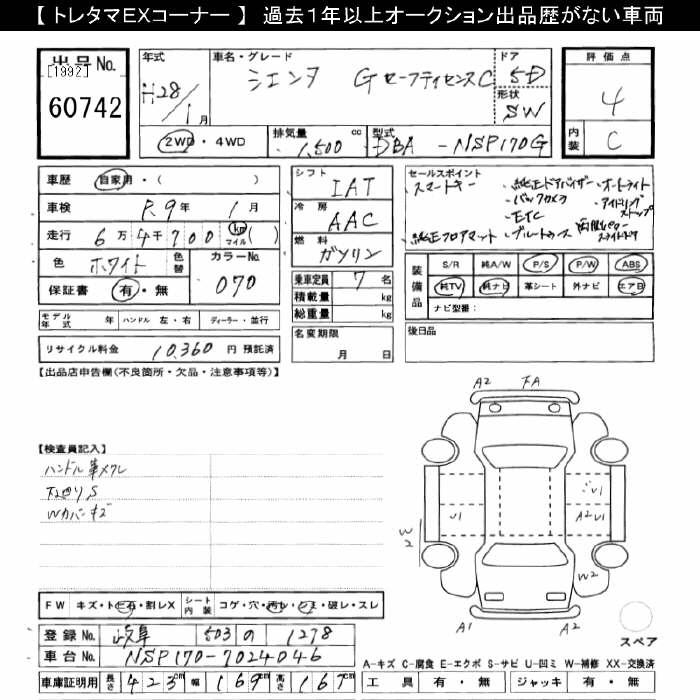 【 トレタマEXコーナー 】 過去1年以上オークション出品歴がない車両
出品 No.
【 1992】
60742
年式
H28/1月
車名・グレード
シエンタ GセーフティセンスC
ドア
5D
形状
SW
2WD・4WD
排気量
1,500 cc
型式
DBA-NSP170G
評価点
4
内装
C
車歴 自家用・( )
車検 R9年 1月
走行 6万4千700 km マイル( )
色 ホワイト 色替 カラーNo. 070
保証書 有・無
シフト IAT
冷房 AAC
燃料 ガソリン
乗車定員 7名
積載量 kg
総重量 kg
名変期限
月 日
セールスポイント
スマートキー ・純正ドアバイザー ・オートライト
・バックカメラ ・アイドリングストップ
・ETC
・純正フロアマット ・ブルートゥース ・両側パワースライドドア
装備品
S/R 純A/W P/S P/W ABS
純TV 純ナビ 革シート 外ナビ エアB
ナビ型番:
後日品
モデル年式 年 ハンドル 左・右 ディーラー・並行
リサイクル料金 10,360 円 預託済
【出品店申告欄(不良箇所・欠品・注意事項等)】
【検査員記入】
ハンドル革メクレ
下廻りS
Wカバーキズ
A2 FA
V1
V1
A2 V1
W2
W2
A1 A2
スペア
FW キズ・トビ石・割レX シート内装 コゲ・穴・汚レ・シミ・破レ・スレ
登録 No. 岐阜 503 の 1278
車台 No. NSP170-7024046
車庫証明用 長さ 423cm 幅 169cm 高さ 167cm
A-キズ C-腐食 E-エクボ S-サビ U-凹ミ W-補修 XX-交換済
工具 有・無 ジャッキ 有・無